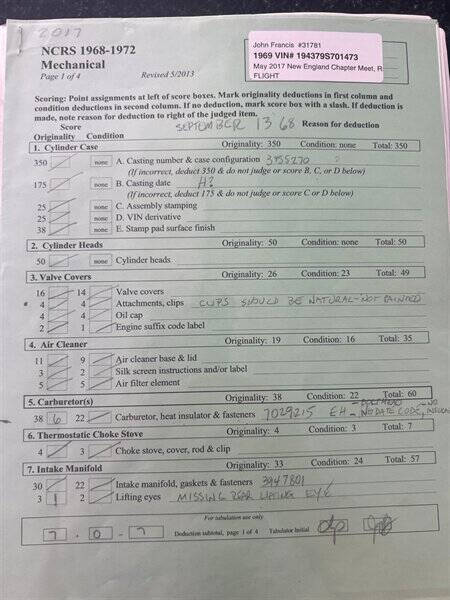 2017
NCRS 1968-1972
Mechanical
Page 1 of 4 Revised 5/2013
John Francis #31781
1969 VIN# 194379S701473
May 2017 New England Chapter Meet, R
FLIGHT
Scoring: Point assignments at left of score boxes. Mark originality deductions in first column and
condition deductions in second column. If no deduction, mark score box with a slash. If deduction is
made, note reason for deduction to right of the judged item.
Score
Originality Condition SEPTEMBER 13 68 Reason for deduction
1. Cylinder Case Originality: 350 Condition: none Total: 350
350 none A. Casting number & case configuration 3955270
(If incorrect, deduct 350 & do not judge or score B, C, or D below)
175 none B. Casting date
(If incorrect, deduct 175 & do not judge or score C or D below)
25 none C. Assembly stamping
25 none D. VIN derivative
38 none E. Stamp pad surface finish
2. Cylinder Heads Originality: 50 Condition: none Total: 50
50 none Cylinder heads
3. Valve Covers Originality: 26 Condition: 23 Total: 49
16 14 Valve covers
4 4 Attachments, clips CLIPS SHOULD BE NATURAL-NOT PAINTED
4 4 Oil cap
2 1 Engine suffix code label
4. Air Cleaner Originality: 19 Condition: 16 Total: 35
11 9 Air cleaner base & lid
3 2 Silk screen instructions and/or label
5 5 Air filter element
5. Carburetor(s) Originality: 38 Condition: 22 Total: 60
38 6 22 Carburetor, heat insulator & fasteners 7029215 EH - NO DATE CODE,
6. Thermostatic Choke Stove Originality: 4 Condition: 3 Total: 7
4 3 Choke stove, cover, rod & clip
7. Intake Manifold Originality: 33 Condition: 24 Total: 57
30 22 Intake manifold, gaskets & fasteners 3947801
3 1 2 Lifting eyes MISSING REAR LIFTING EYE
For tabulation use only
7 . 0 . 7 Deduction subtotal, page 1 of 4 Tabulator Initial